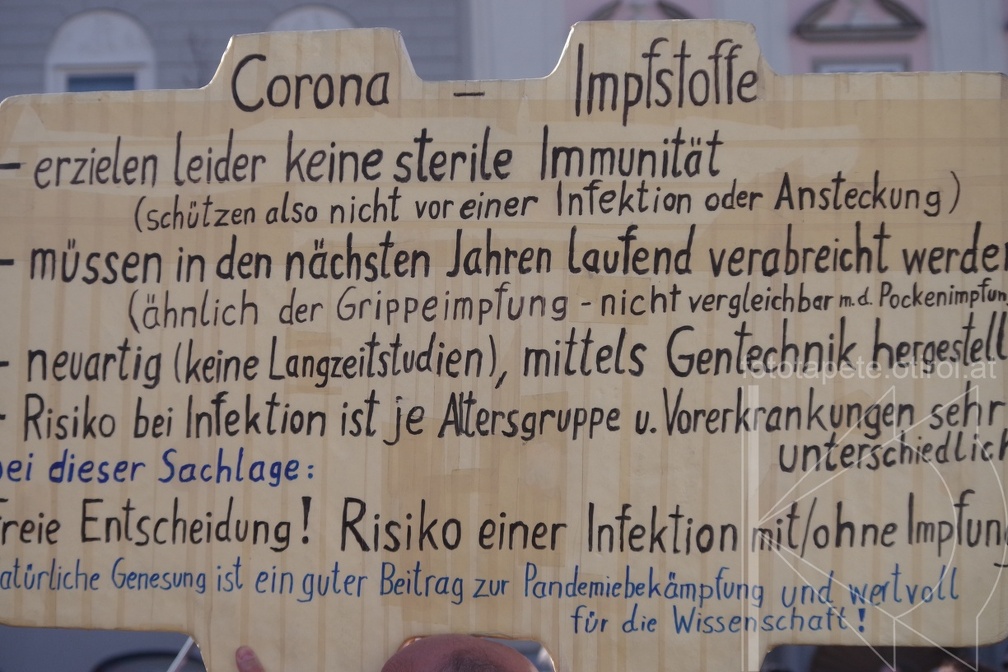 Corona - Impfstoffe
- erzielen leider keine sterile Immunität
(schützen also nicht vor einer Infektion oder Ansteckung)
- müssen in den nächsten Jahren laufend verabreicht werde
(ähnlich der Grippeimpfung - nicht vergleichbar m.d. Pockenimpfun
- neuartig (keine Langzeitstudien), mittels Gentechnik hergestell
- Risiko bei Infektion ist je Altersgruppe u. Vorerkrankungen sehr
unterschiedlich
bei dieser Sachlage:
freie Entscheidung! Risiko einer Infektion mit/ohne Impfun
atürliche Genesung ist ein guter Beitrag zur Pandemiebekämpfung und wertvoll
für die Wissenschaft!
fototapete.ottirol.at